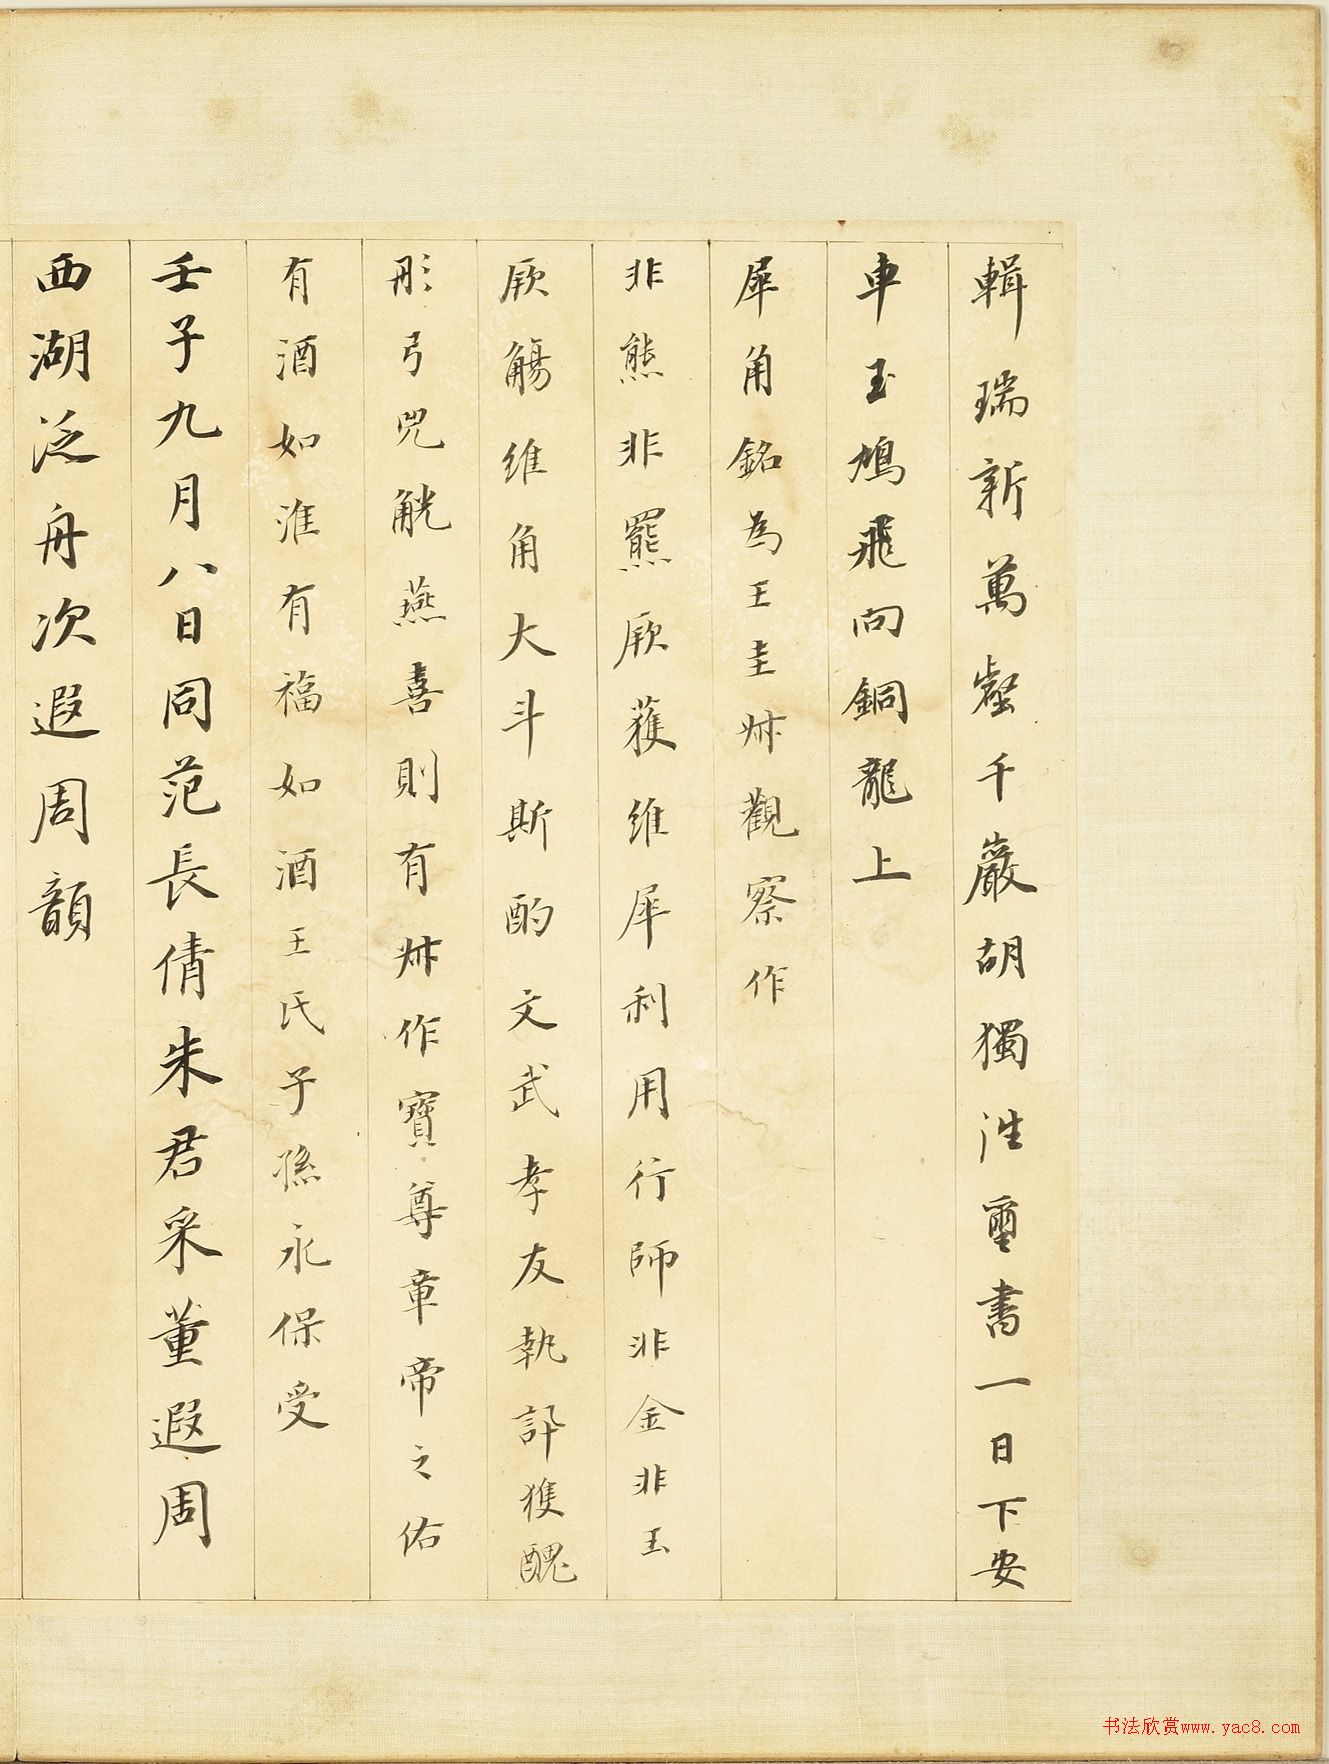 輯瑞新萬壑千巖胡獨注璽書一日下安
車玉鳩飛向銅龍上
犀角銘為王圭叔觀察作
非熊非羆厥獲維犀利用行師非金非玉
厥觴維角大斗斯酌文武孝友執訊獲醜
彤弓兕觥燕喜則有叔作寶尊章帝之佑
有酒如淮有福如酒王氏子孫永保受
壬子九月八日同范長倩朱君采董遐周
西湖泛舟次遐周韻
书法欣赏www.yac8.com